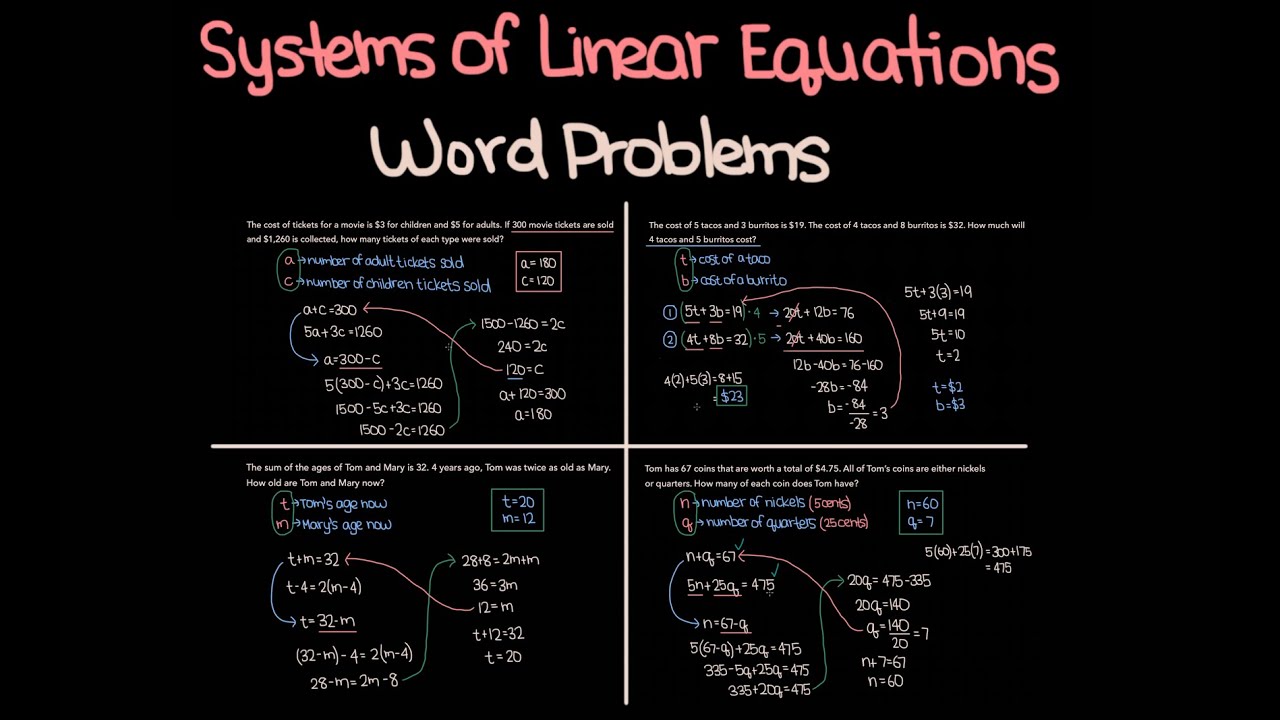 Systems of Linear Equations
Word Problems
The cost of tickets for a movie is $3 for children and $5 for adults. If 300 movie tickets are sold
and $1,260 is collected, how many tickets of each type were sold?
a → number of adult tickets sold
c → number of children tickets sold
a = 180
c = 120
a + c = 300
5a + 3c = 1260
a = 300 - c
5(300 - c) + 3c = 1260
1500 - 5c + 3c = 1260
1500 - 2c = 1260
1500 - 1260 = 2c
240 = 2c
120 = c
a + 120 = 300
a = 180
The cost of 5 tacos and 3 burritos is $19. The cost of 4 tacos and 8 burritos is $32. How much will
4 tacos and 5 burritos cost?
t → cost of a taco
b → cost of a burrito
① (5t + 3b = 19) · 4 → 20t + 12b = 76
② (4t + 8b = 32) · 5 → 20t + 40b = 160
12b - 40b = 76 - 160
-28b = -84
b = -84/-28 = 3
4(2) + 5(3) = 8 + 15
= $23
5t + 3(3) = 19
5t + 9 = 19
5t = 10
t = 2
t = $2
b = $3
The sum of the ages of Tom and Mary is 32. 4 years ago, Tom was twice as old as Mary.
How old are Tom and Mary now?
t → Tom's age now
m → Mary's age now
t = 20
m = 12
t + m = 32
t - 4 = 2(m - 4)
t = 32 - m
(32 - m) - 4 = 2(m - 4)
28 - m = 2m - 8
28 + 8 = 2m + m
36 = 3m
12 = m
t + 12 = 32
t = 20
Tom has 67 coins that are worth a total of $4.75. All of Tom's coins are either nickels
or quarters. How many of each coin does Tom have?
n → number of nickels (5 cents)
q → number of quarters (25 cents)
n = 60
q = 7
n + q = 67 ✓
5n + 25q = 475 ✓
n = 67 - q
5(67 - q) + 25q = 475
335 - 5q + 25q = 475
335 + 20q = 475
20q = 475 - 335
20q = 140
q = 140/20 = 7
n + 7 = 67
n = 60
5(60) + 25(7) = 300 + 175
= 475